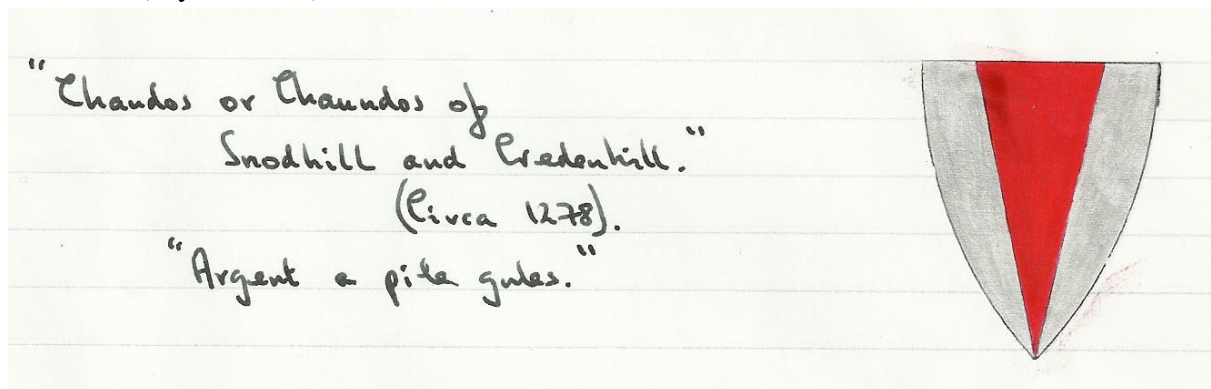 "Chandos or Chaundos of
Snodhill and Credenhill."
(Circa 1278).
"Argent a pile gules."